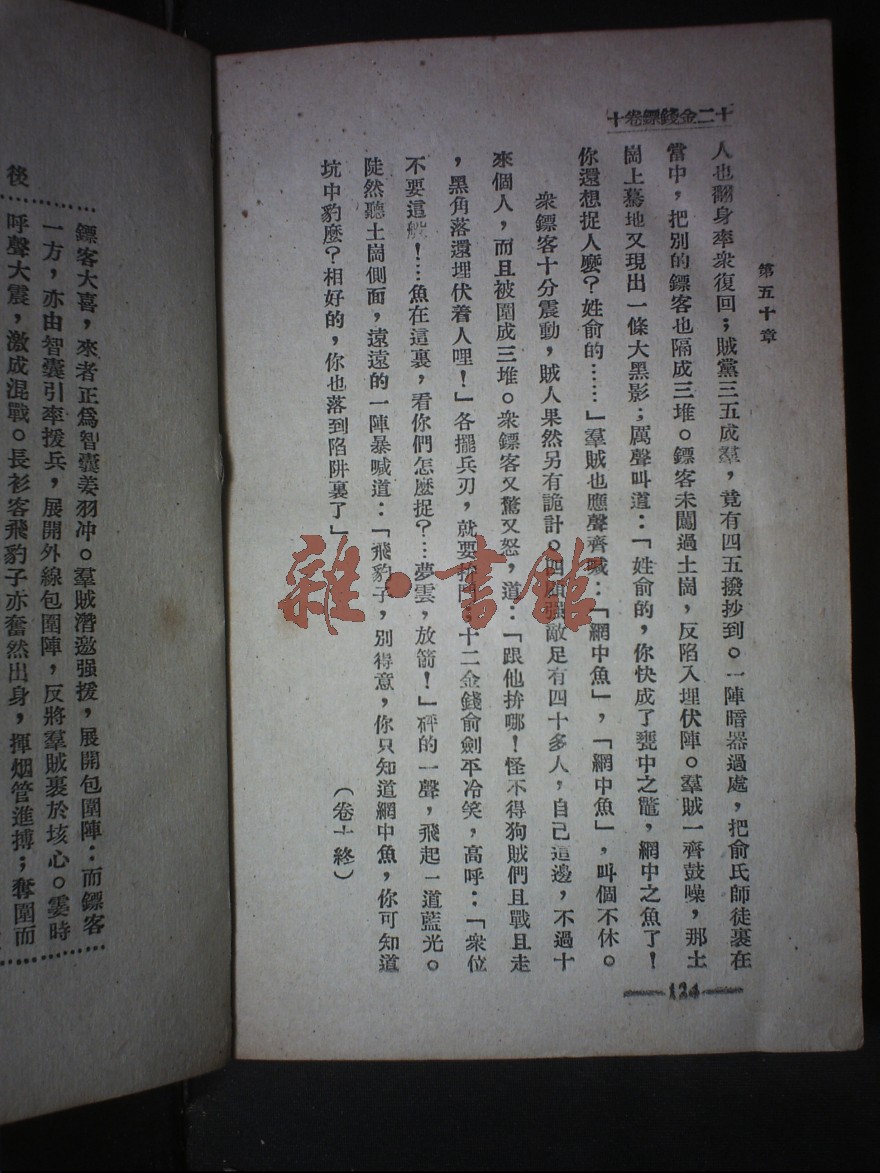 十二金錢鏢卷十
第五十章
人也翻身率衆復回；賊黨三五成羣，竟有四五撥抄到。一陣暗器過處，把俞氏師徒裹在
當中，把別的鏢客也隔成三堆。鏢客未闖過土崗，反陷入埋伏陣。羣賊一齊鼓噪，那土
崗上驀地又現出一條大黑影；厲聲叫道：「姓俞的，你快成了甕中之鼈，網中之魚了！
你還想捉人麽？姓俞的……」羣賊也應聲齊喊：「網中魚」，「網中魚」，叫個不休。
衆鏢客十分震動，賊人果然另有詭計。四面强敵足有四十多人，自己這邊，不過十
來個人，而且被圍成三堆。衆鏢客又驚又怒，道：「跟他拚哪！怪不得狗賊們且戰且走
，黑角落還埋伏着人哩！」各擺兵刃，就要拚鬥，十二金錢俞劍平冷笑，高呼：「衆位
不要這般！…魚在這裏，看你們怎麽捉？…夢雲，放箭！」砰的一聲，飛起一道藍光。
陡然聽土崗側面，遠遠的一陣暴喊道：「飛豹子，別得意，你只知道網中魚，你可知道
坑中豹麽？相好的，你也落到陷阱裏了」
（卷十終）
124
鏢客大喜，來者正爲智囊姜羽冲。羣賊潛邀强援，展開包圍陣：而鏢客
一方，亦由智囊引率援兵，展開外線包圍陣，反將羣賊裹於垓心。霎時
呼聲大震，激成混戰。長衫客飛豹子亦奮然出身，揮烟管進搏；奪圍而
後
雜·書館